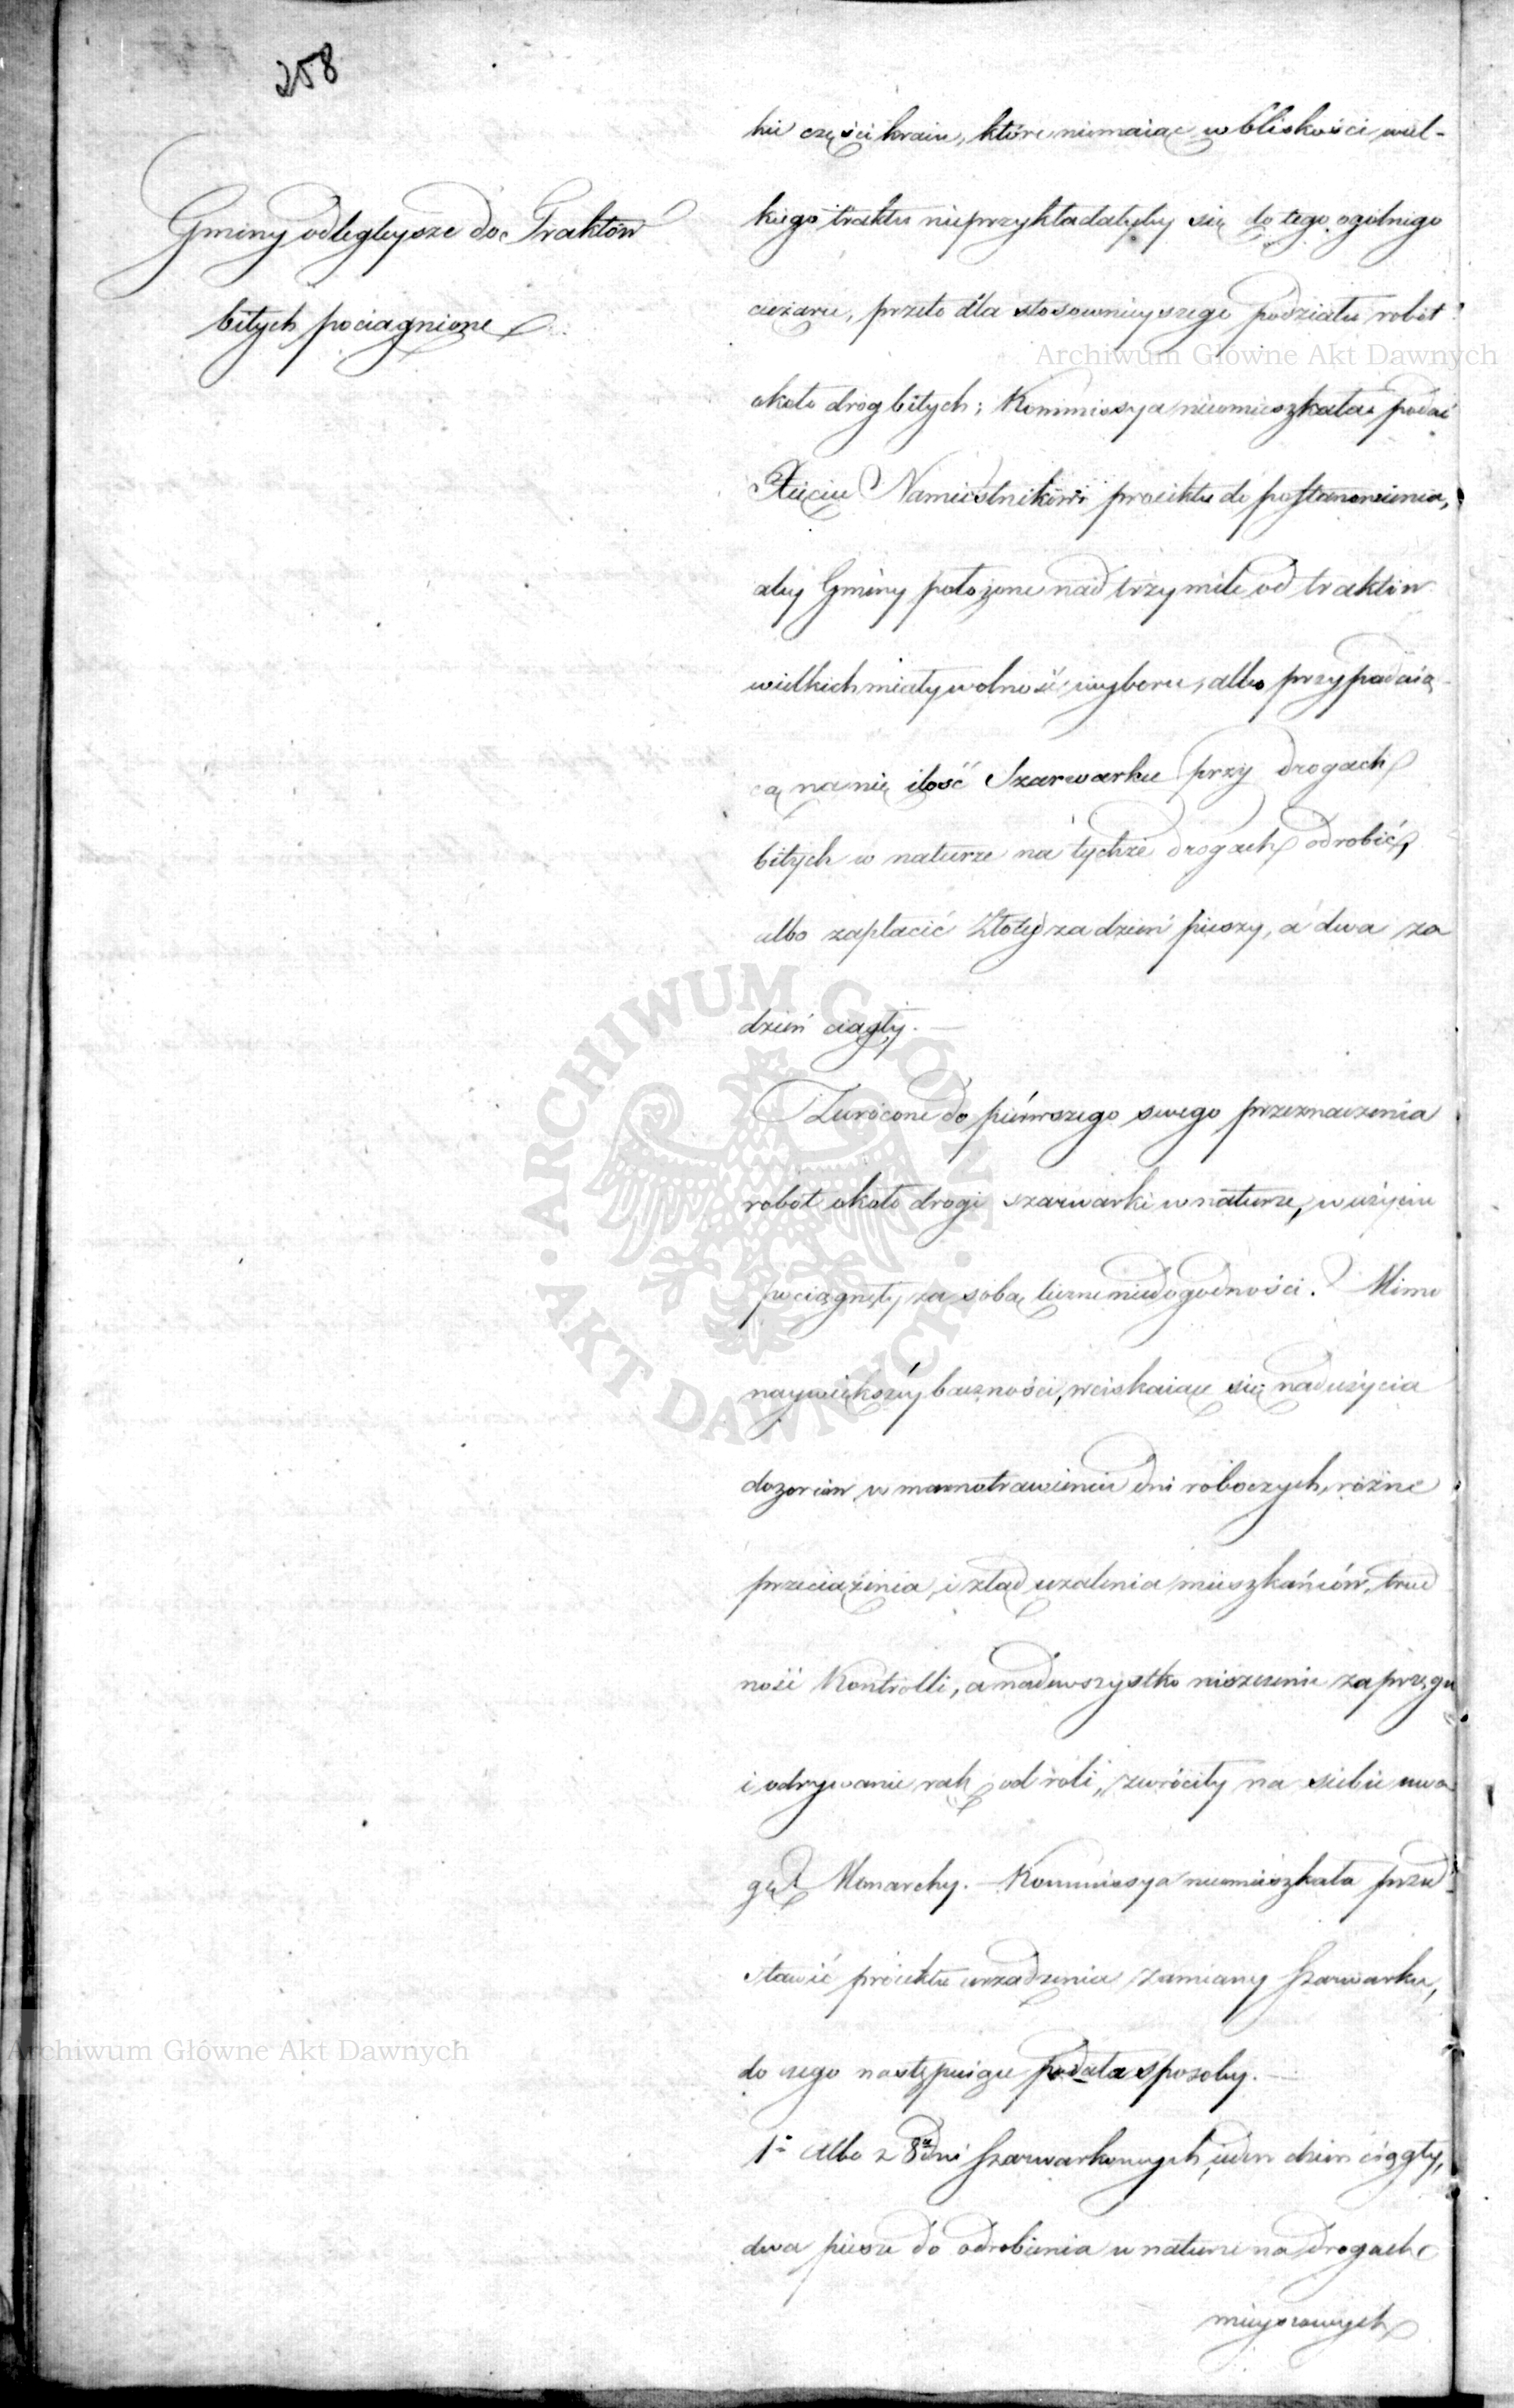 258
Gminy odlegleysze do Traktów
bitych pociągnione
kie części kraiu, które niemaiąc w bliskości wiel-
kiego traktu nieprzykładałyby się do tego ogólnego
ciężaru, przeto dla stosownieyszego podziału robót
około dróg bitych; Kommissya nieomieszkała podać
Xięciu Namiestnikowi proiektu do postanowienia,
aby Gminy położone nad trzy mile od traktów
wielkich miały wolność wyboru, albo przypadaią-
cą na nie ilość Szarwarku przy drogach
bitych w naturze na tychże drogach odrobić,
albo zapłacić Złoty za dzień pieszy, a dwa za
dzień ciągły.
Zwrócone do pierwszego swego przeznaczenia
robót około drogi szarwarki w naturze, w użyciu
pociągnęły za sobą liczne niedogodności. Mimo
naywiększey baczności, wciskaiące się nadużycia
dozorców w marnotrawieniu dni roboczych, różne
przeciążenia i ztąd użalenia mieszkańców, trud
ność Kontrolli, a nadewszystko niszczenie zaprzęgu
i odrywanie rąk od roli, zwróciły na siebie uwa
gę Monarchy. – Kommissya nieomieszkała przed
stawić proiektu urządzenia zamiany Szarwarku,
do czego następuiące podała sposoby. –
1° Albo z 8u dni szarwarkowych, ieden dzień ciągły,
dwa piesze do odrobienia w naturze na drogach
mieyscowych
Archiwum Główne Akt Dawnych
Archiwum Główne Akt Dawnych
ARCHIWUM GŁÓWNE · AKT DAWNYCH ·